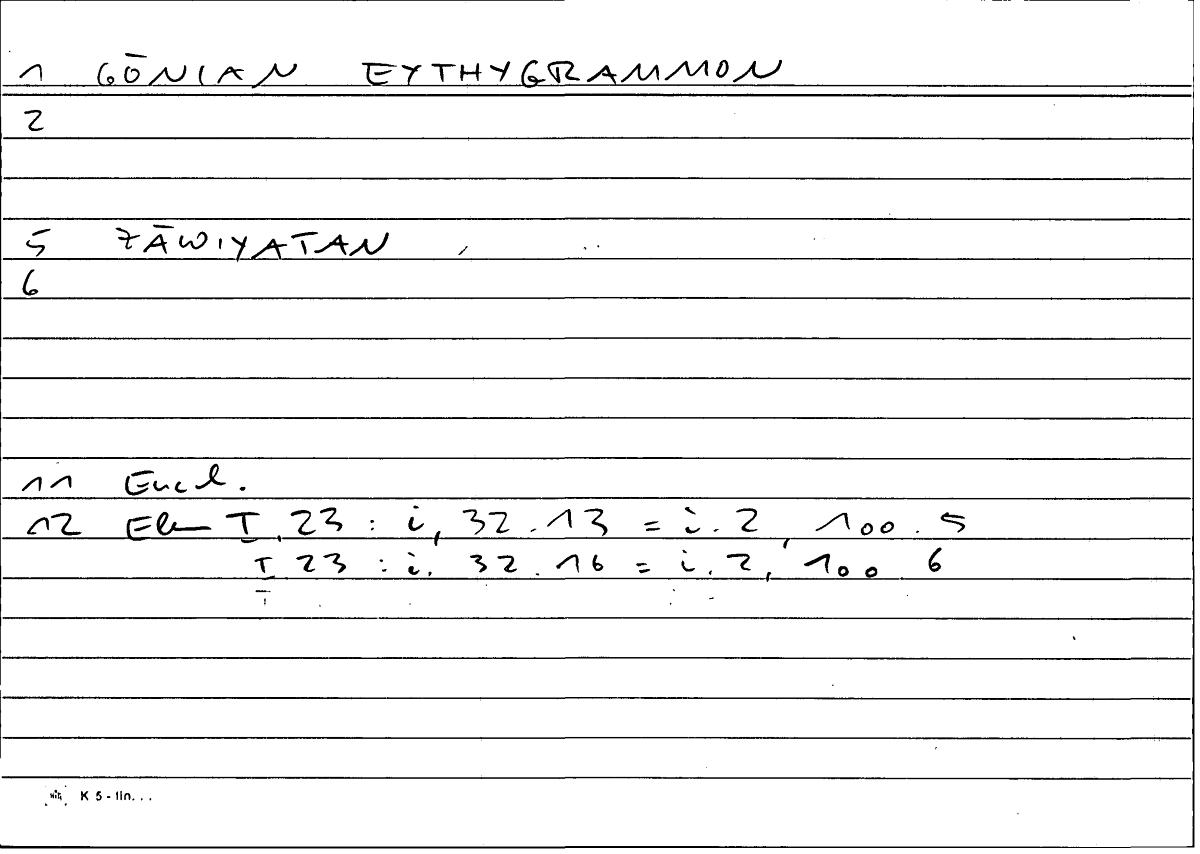 1 GŌNIAN EYTHYGRAMMON
2
5 ZĀWIYATAN
6
11 Eucl.
12 Elem I, 23 : i, 32.13 = i.2, 100.5
I 23 : i. 32.16 = i.2, 100 6
K 5 - lin...